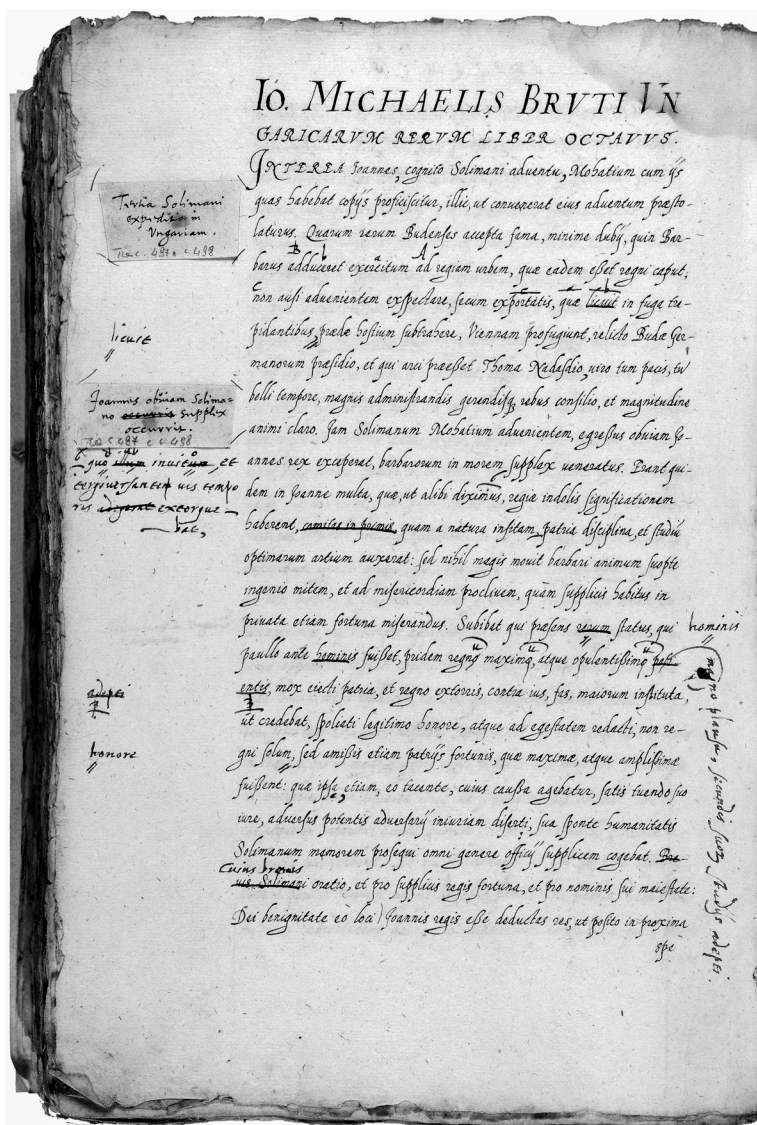 IO. MICHAELIS BRVTI VN
GARICARVM RERVM LIBER OCTAVVS.
INTEREA Joannes, cognito Solimani adventu, Mohatium cum ijs
quas habebat copijs proficiscitur, illic, ut convenerat eius adventum præsto-
laturus. Quarum rerum Budenses accepta fama, minime dubij, quin Bar-
barus adduceret exercitum ad regiam urbem, quæ eadem esset regni caput,
non ausi advenientem exspectare, secum exportatis, quæ licuit in fuga tre-
pidantibus, prædæ hostium subtrahere, Viennam profugiunt, relicto Budæ Ger-
manorum præsidio, et qui arci præesset Thoma Nadasdio, viro tum pacis, tū
belli tempore, magnis administrandis gerendisq; rebus consilio, et magnitudine
animi claro. Jam Solimanum Mohatium advenientem, egressus obviam Jo-
annes rex exceperat, barbarorum in morem supplex veneratus. Erant qui-
dem in Joanne multa, quæ, ut alibi diximus, regiæ indolis significationem
haberent, comitas in primis, quam a natura insitam, patria disciplina, et studiū
optimarum artium auxerat: sed nihil magis movit barbari animum suopte
ingenio mitem, et ad misericordiam proclivem, quàm supplicis habitus in
privata etiam fortuna miserandus. Subibat qui præsens rerum status, qui
paullo ante hominis fuisset, pridem regno maximo, atque opulentissimo poti-
entis, mox eiecti patria, et regno extorris, contra ius, fas, maiorum instituta,
ut credebat, spoliati legitimo honore, atque ad egestatem redacti, non re-
gni solum, sed amissis etiam patrijs fortunis, quæ maximæ, atque amplissimæ
fuissent: quæ ipsa etiam, eo tacente, cuius caussa agebatur, satis tuendo suo
iure, adversus potentis adversarij iniuriam diserti, sua sponte humanitatis
Solimanum memorem prosequi omni genere officij supplicem cogebat. Bre-
Cuius brevis
vis Solimani oratio, et pro supplicis regis fortuna, et pro nominis sui maiestate:
Dei benignitate eò loci Joannis regis esse deductas res, ut posito in proxima
spe
Tertia Solimani
expeditio in
Vngariam.
c. 497 e c. 498
licuit
Joannes obviam Solima-
no occurrit supplex
occurrit.
c. 497 e c. 498
quo illum invitum et
tergiversantem vis tempo
ris adegerat extorque-
bat,
adepti
honore
hominis
magno plausu, secundis suor studijs adepti.